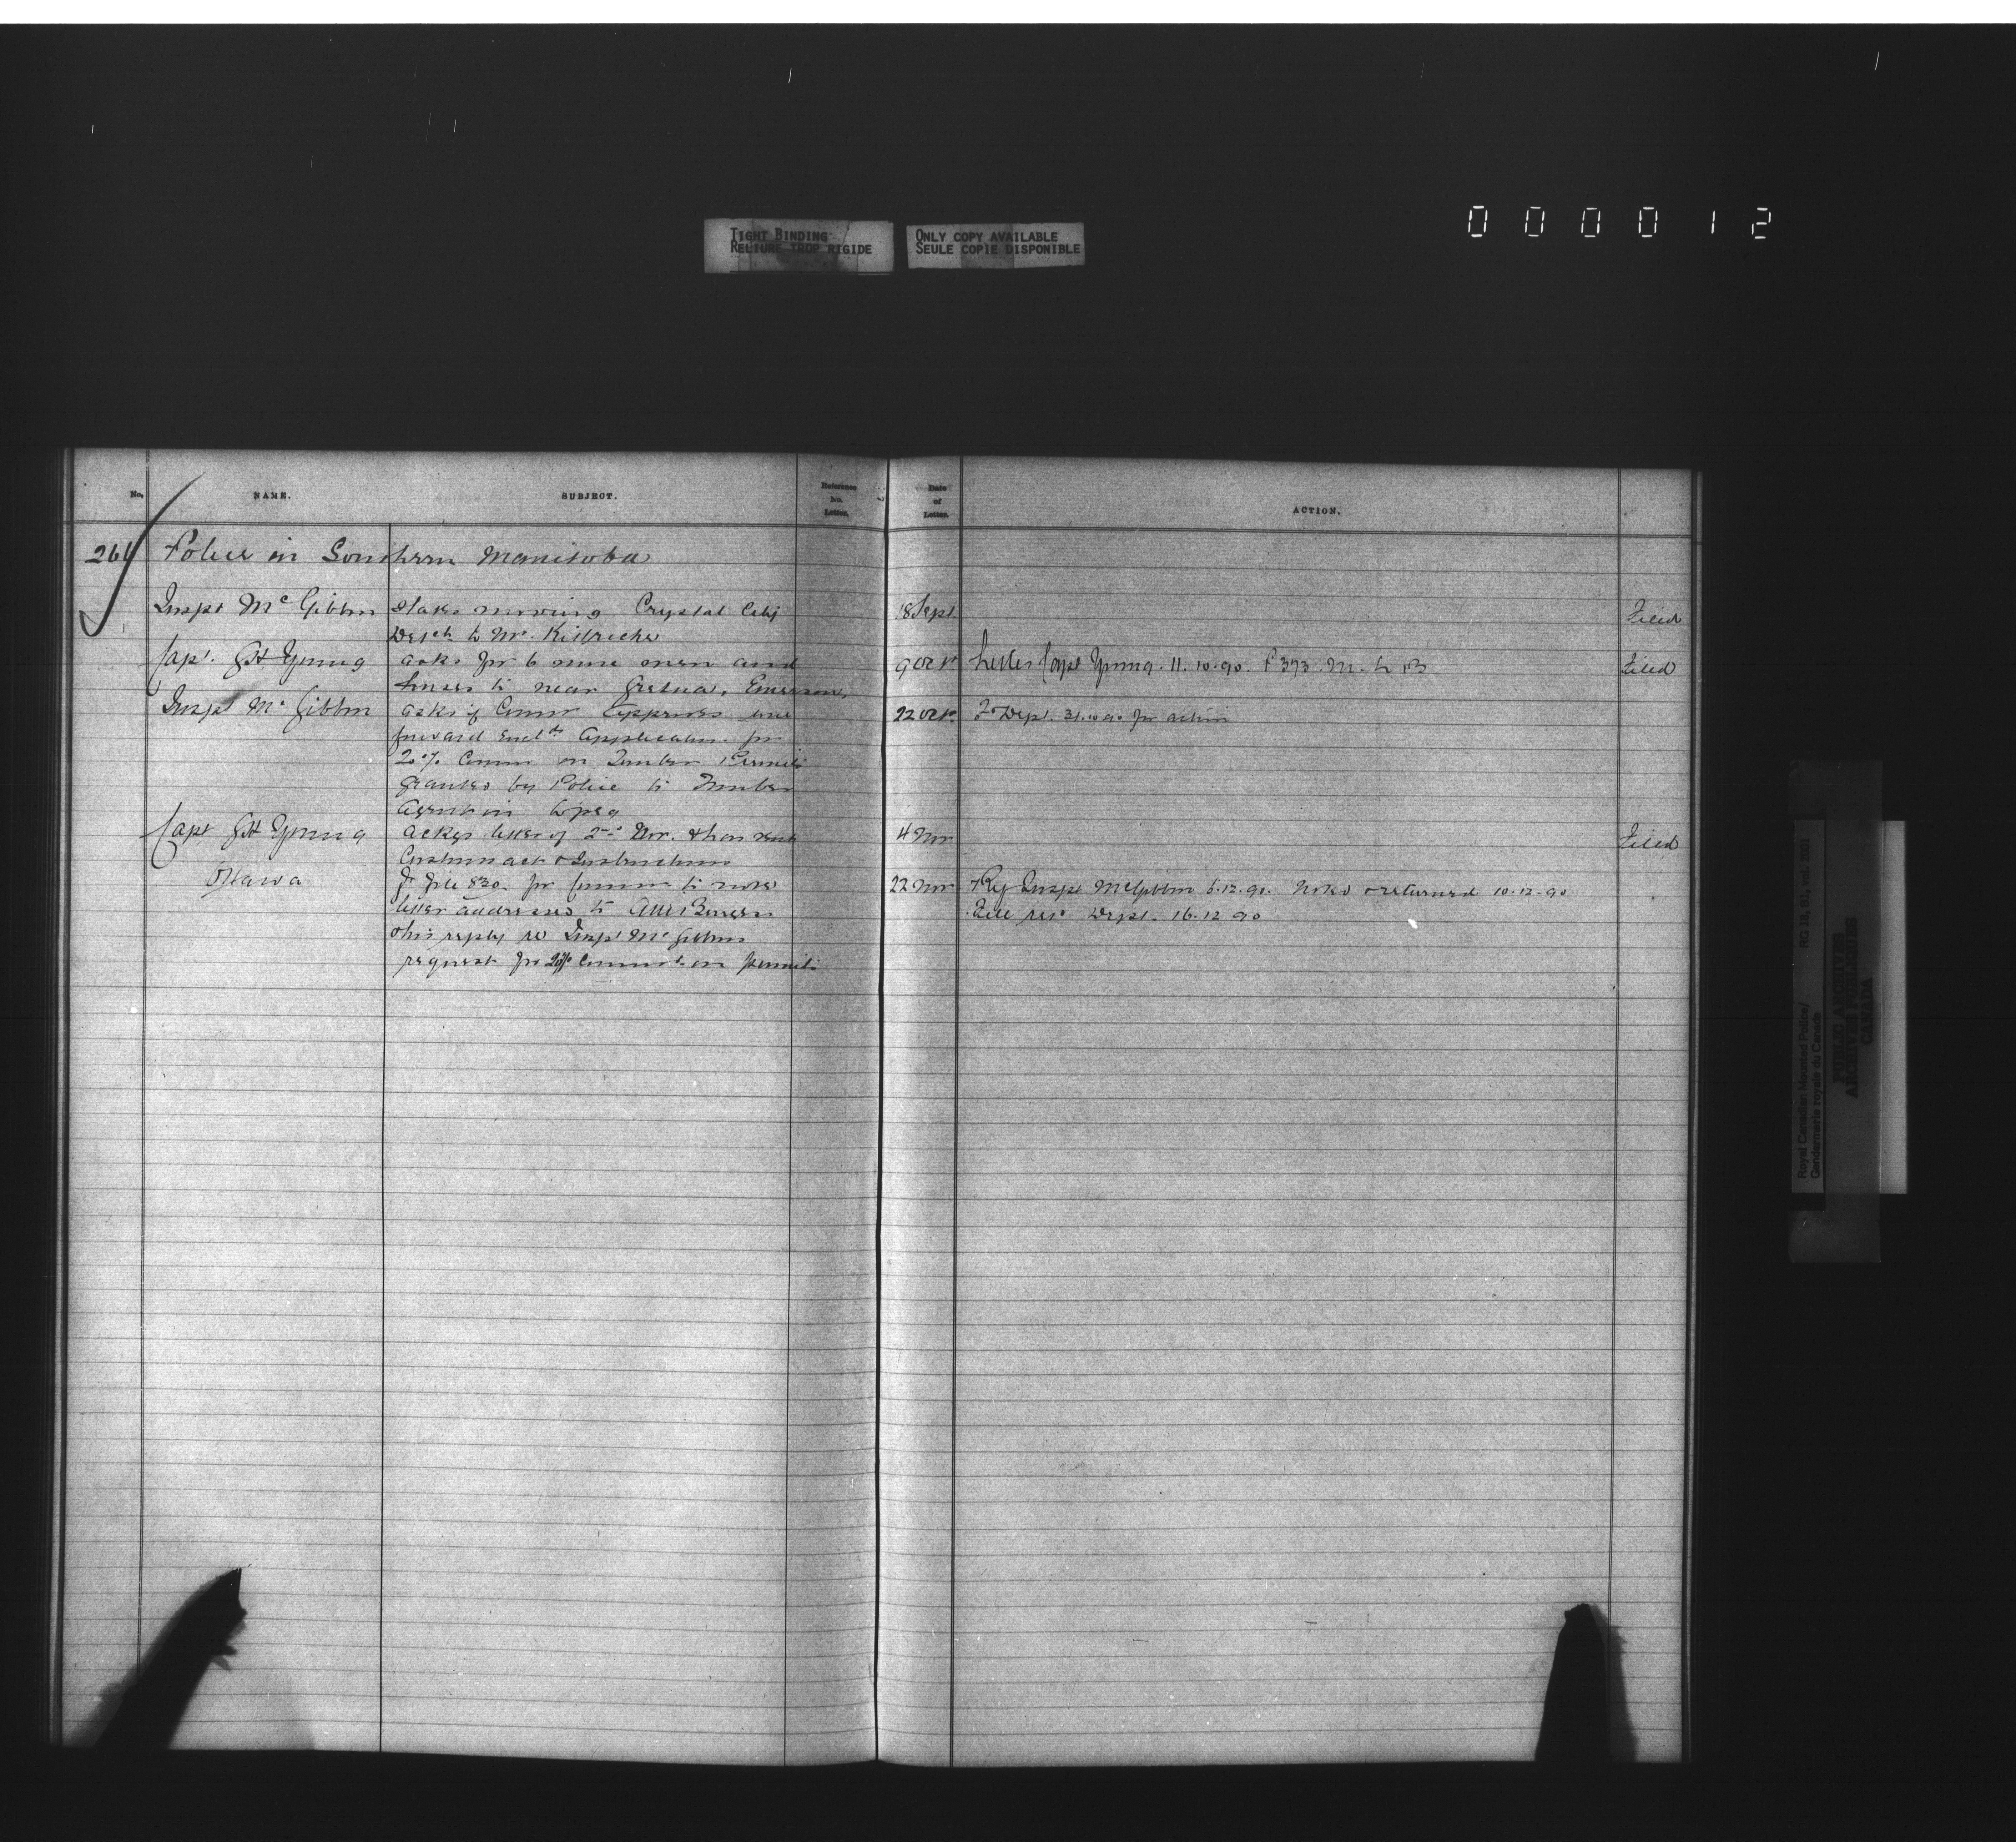 TIGHT BINDING
RELIURE TROP RIGIDE
ONLY COPY AVAILABLE
SEULE COPIE DISPONIBLE
000012
No. NAME. SUBJECT. Reference No. Letter. Date of Letter. ACTION.
Police in Southern Manitoba
Inspr McGibbon states moving Crystal City 18 Sept. Filed
to Mr.
Capt. Young asks for 6 more men and 9 Oct Letter Capt Young. 11.10.90. P 373 M. Filed
horses to near Gretna, Emerson,
Inspr McGibbon asks if Commr approves one 22 Oct To Dept. 31.10.90 for action
forward Application for
20% Comm on Timber Permits
granted by Police to Timber
Agent in Wpeg
Capt Young ackgs letter of 2nd Nov. & has sent 4 Nov Filed
Customs act & Instructions
Ottawa file 830 for Commr to note 22 Nov Inspr McGibbon 6.12.90. Noted & returned 10.12.90
letter addressed to File Dept. 16.12.90
& his reply re Inspr McGibbon
request for 20% on permits
Royal Canadian Mounted Police/
Gendarmerie royale du Canada
RG 18, B1, vol. 2001
PUBLIC ARCHIVES
ARCHIVES PUBLIQUES
CANADA